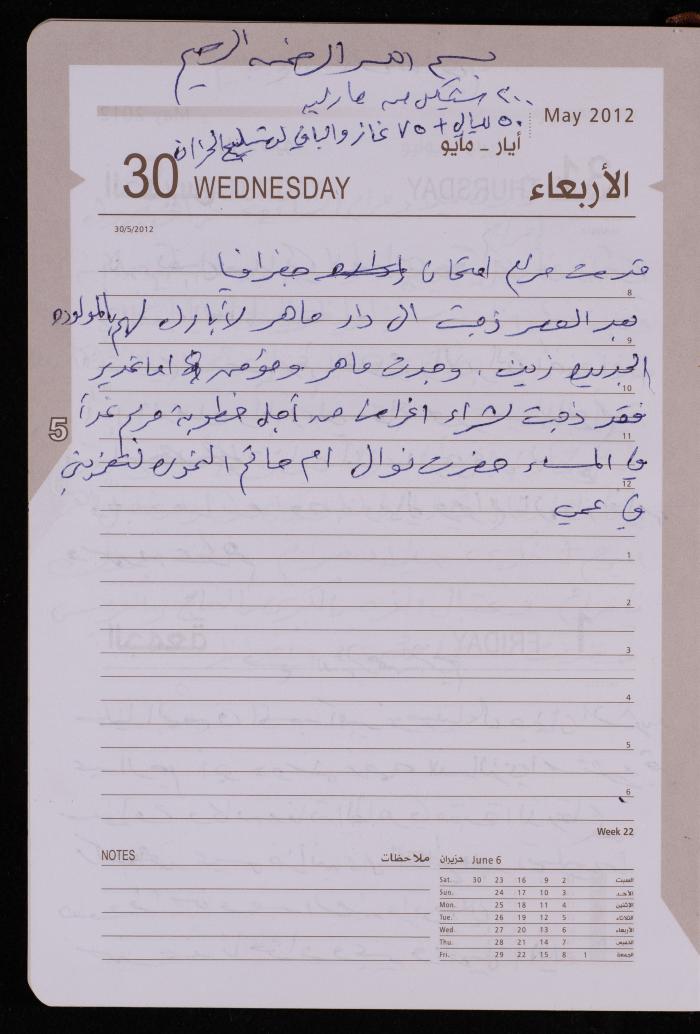 بسم الله الرحمن الرحيم
٢٠٠ شيكل من ماريه
٥٠ ليالي + ٧٥ غاز والباقي لتسليح الخزان
May 2012
أيار - مايو
30 WEDNESDAY الأربعاء
30/5/2012
قدمت مرام امتحان جغرافيا
8
بعد العصر ذهبت الى دار ماهر لأبارك لهم بالمولوده
9
الجديده زينة . وجدت ماهر ومؤمن اما تغدير
10
فقد ذهبت لشراء اغراض من أجل خطوبة مريم غداً
11
5
في المساء حضرت نوال ام حاتم لتعزيتي
12
في عمي
1
2
3
4
5
6
Week 22
NOTES ملاحظات
حزيران June 6
Sat. 30 23 16 9 2 السبت
Sun. 24 17 10 3 الأحد
Mon. 25 18 11 4 الاثنين
Tue. 26 19 12 5 الثلاثاء
Wed. 27 20 13 6 الأربعاء
Thu. 28 21 14 7 الخميس
Fri. 29 22 15 8 1 الجمعة